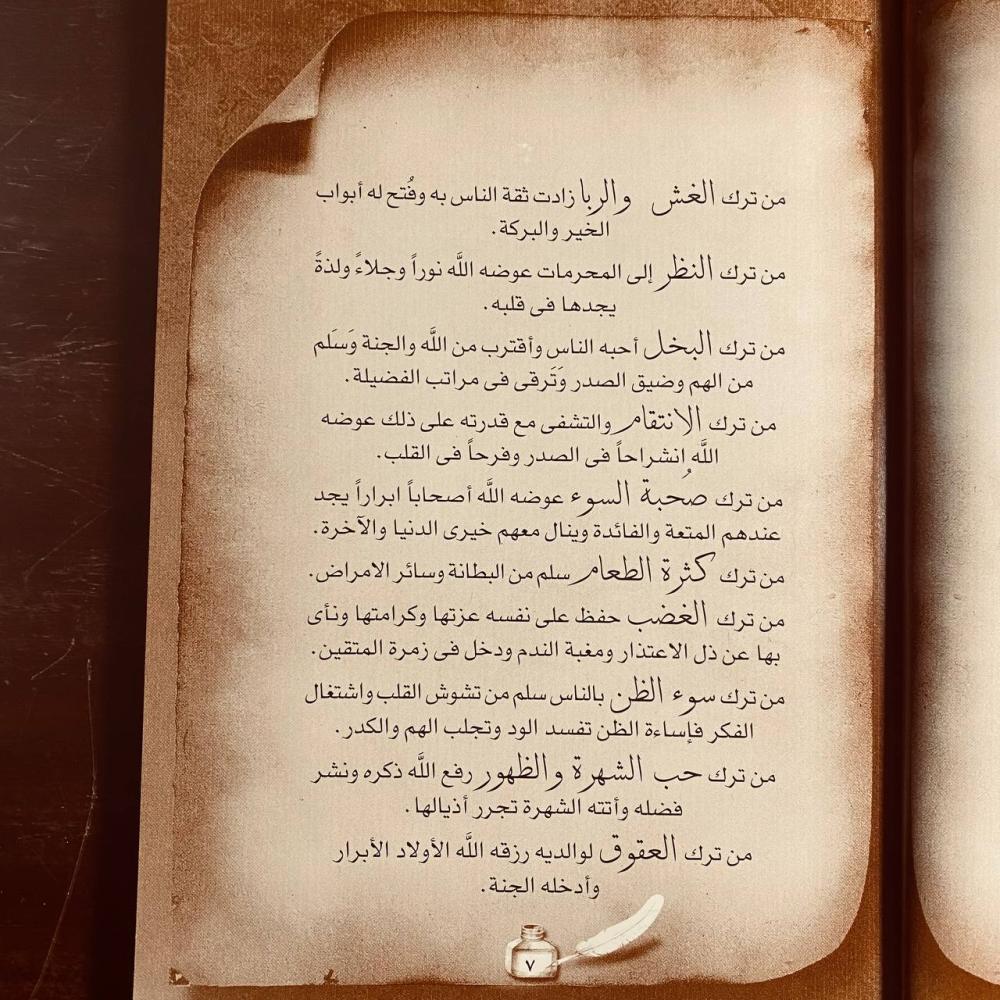 من ترك الغش والربا زادت ثقة الناس به وفُتح له أبواب
الخير والبركة.
من ترك النظر إلى المحرمات عوضه اللَّه نوراً وجلاءً ولذةً
يجدها فى قلبه.
من ترك البخل أحبه الناس وأقترب من اللَّه والجنة وَسَلم
من الهم وضيق الصدر وَتَرقى فى مراتب الفضيلة.
من ترك الانتقام والتشفى مع قدرته على ذلك عوضه
اللَّه إنشراحاً فى الصدر وفرحاً فى القلب.
من ترك صُحبة السوء عوضه اللَّه أصحاباً ابراراً يجد
عندهم المتعة والفائدة وينال معهم خيرى الدنيا والآخرة.
من ترك كثرة الطعام سلم من البطانة وسائر الامراض.
من ترك الغضب حفظ على نفسه عزتها وكرامتها ونأى
بها عن ذل الاعتذار ومغبة الندم ودخل فى زمرة المتقين.
من ترك سوء الظن بالناس سلم من تشوش القلب واشتغال
الفكر فإساءة الظن تفسد الود وتجلب الهم والكدر.
من ترك حب الشهرة والظهور رفع اللَّه ذكره ونشر
فضله وأتته الشهرة تجرر أذيالها.
من ترك العقوق لوالديه رزقه اللَّه الأولاد الأبرار
وأدخله الجنة.
٧